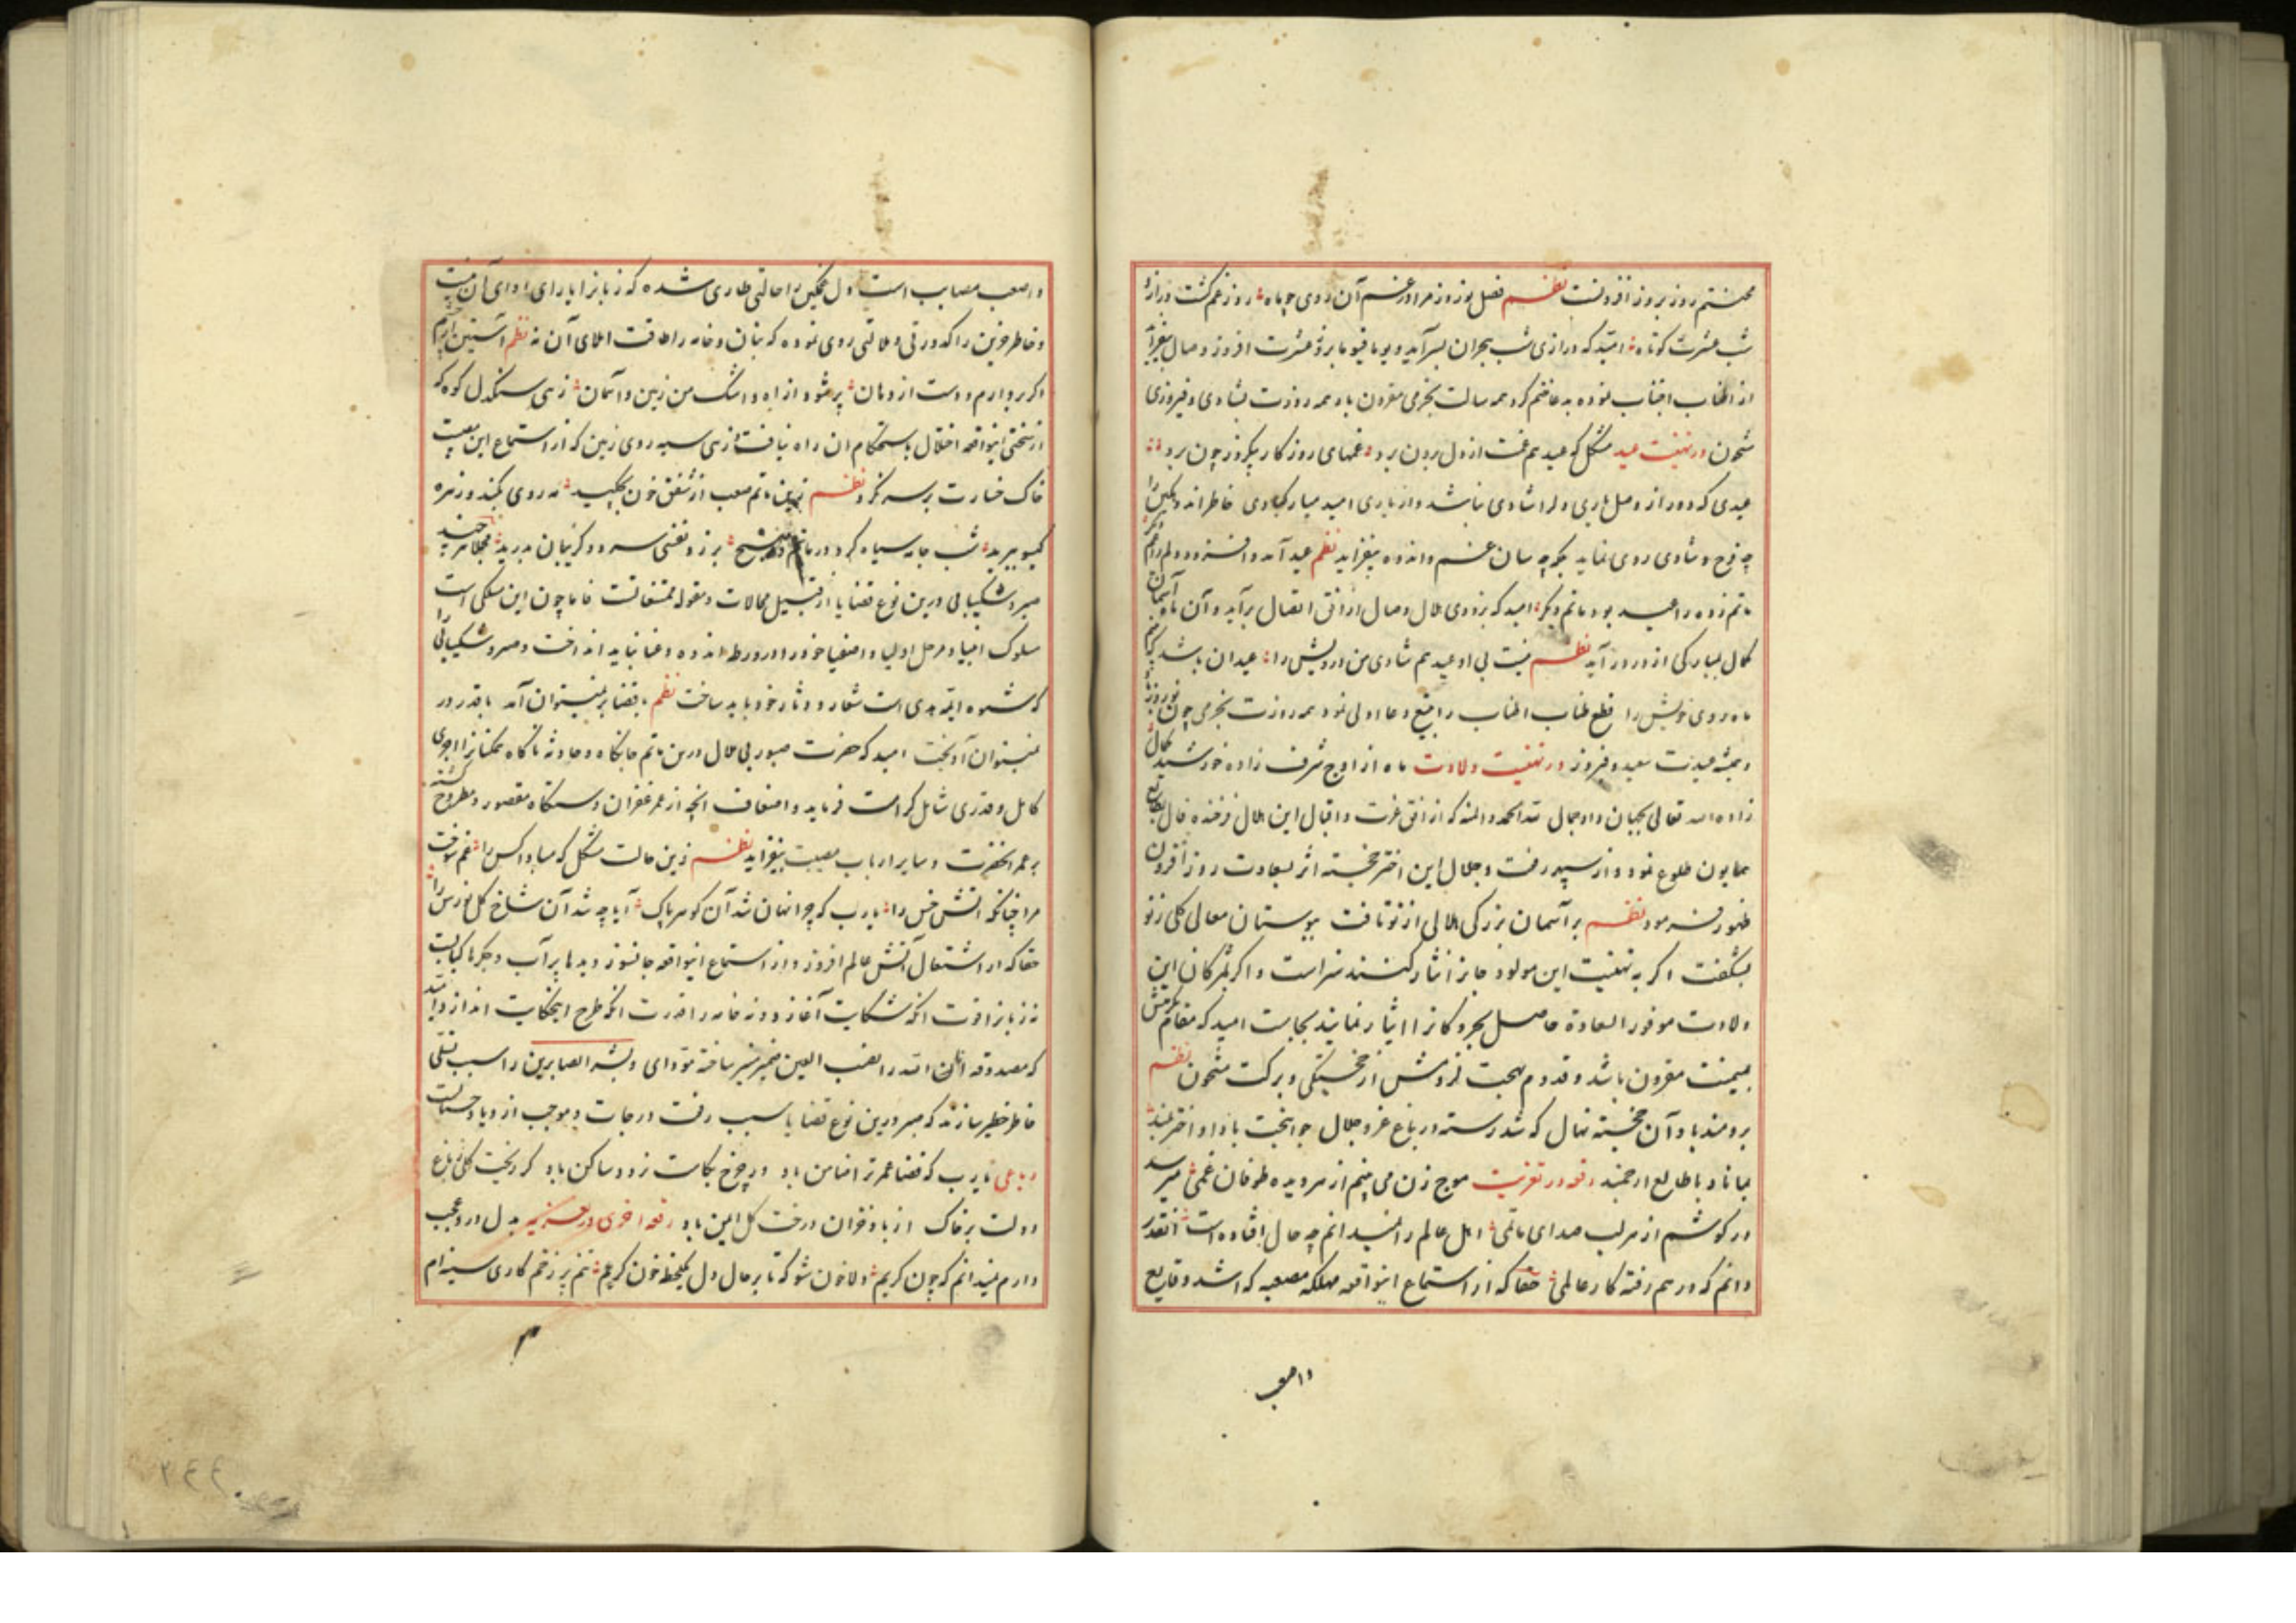 محنتم روز بروز افزونست نظم فصل نوروز مرا در غم آن روی چو ماه روز غم گشت دراز و
شب عشرت کوتاه امید که درازی شب هجران بسر آید و یوما فیوما بر عشرت افروز وصال
از اطناب اجتناب نموده بدعا ختم کرد همه سالت بخرمی مقرون باد همه روزت بشادی و فیروزی
مشحون در تهنیت عید مشکل که عید هم غمت از دل برون برد غمهای روزکار بیکروز چون برد
عیدی که دور از وصل یاری دلرا شادی نباشد و از یاری امید مبارکبادی خاطر اندوهکین را
چه فرح و شادی روی نماید بکه چه سان غم و اندوه بیفزاید نظم عید آمد و افزود دلم را غم
ماتم زده را عید بود ماتم دیکر امید که بزودی هلال وصال از افق اتصال برآید و آن ماه آسمان
کمال بمبارکی از در در آید نظم نیست بی او عید هم شادی من درویش را عید آن باشد که
ماه روی خویش را قطع طناب اطناب را بتیغ دعا اولی نمود همه روزت بخرمی چون نوروز
همیشه عیدت سعید و فیروز در تهنیت ولادت ماه از اوج شرف زاده خورشید کمال
زاده الله تعالی بجهان داد جمال لله الحمد والمنه که از افق عزت و اقبال این هلال فرخنده فال بطالع
همایون طلوع نمود و از سپهر رفعت و جلال این اختر خجسته اثر بسعادت روز افزون
ظهور فرمود نظم بر آسمان بزرکی هلالی از نو تافت ببوستان معالی کلی ز نو
بشکفت اکر به تهنیت این مولود جانرا نثار کنند سزاست و اکر بشکرانه این
ولادت موفور السعادة حاصل بحر و کانرا ایثار نمایند بجاست امید که مقدم شریفش
بمیمنت مقرون باشد و قدوم بهجت لزومش از خجستکی و برکت مشحون نظم
برومند باد آن خجسته نهال که شد رسته در باغ عز و جلال جوانبخت باد او اختر بلند
بماناد با طالع ارجمند رقعه در تعزیت موج زن می بینم از هر دیده طوفان غمی میرسد
در کوشم از هر لب صدای ماتمی اهل عالم را نمیدانم چه حال افتاده است انقدر
دانم که در هم رفته کار عالمی حقا که از استماع اینواقعه مهلکه مصعبه که اشد وقایع
واصعب
واصعب مصایب است دل غمکین را حالتی طاری شده که زبانرا یارای ادای آن نیست
و خاطر حزین را کدورتی و ملالتی روی نموده که بنان و خامه را طاقت املای آن نه نظم آستین از چشم
اکر بردارم و دست از دهان پر شود از آه و اشک من زمین و آسمان زهی سنکدل کوه که
از سختی اینواقعه اختلال باستحکام ان راه نیافت زهی سیه روی زمین که از استماع این مصیبت
خاک خسارت بر سر نکرد نظم زین ماتم صعب از شفق خون بچکید مه روی بکند و زهره
کیسو ببرید شب جامه سیاه کرد در ماتم و صبح بر زد نفسی سرد و کریبان بدرید هر چند
صبر و شکیبائی درین نوع قضایا از قبیل محالات و مقوله ممتنعاتست فاما چون این مسلکی است
سلوک انبیا و مرحل اولیا و اصفیا خود را در ورطه اندوه و عنا نباید انداخت و صبر و شکیبائی را
که شیوه ائمه هدی است شعار و دثار خود باید ساخت نظم با قضا بر نمیتوان آمد با قدر در
نمیتوان آویخت امید که حضرت صبور بی ملال درین ماتم جانکاه و حادثه ناکاه همکنانرا اجری
کامل و قدری شامل کرامت فرماید و اضعاف انچه از عمر غفران دستکاه مقصور و مطروح کشته
بر عمر انحضرت و سایر ارباب مصیبت بیفزاید نظم زین حالت مشکل که مبادا کس را غم سوخت
مرا چنانکه آتش خس را یا رب که چرا نهان شد آن کوهر پاک آیا چه شد آن شاخ کل نورس را
حقا که از اشتعال آتش عالم افروز و از استماع اینواقعه جانسوز دیدها پر آب و جکرها کبابست
نه زبانرا قوت انکه شکایت آغازد و نه خامه را قدرت انکه طرح اینحکایت اندازد امید
که مصدوقه ان الله را نصب العین ضمیر منیر ساخته مؤدای و بشر الصابرین را سبب تسلی
خاطر خطیر سازند که صبر درین نوع قضایا سبب رفعت درجات و موجب ازدیاد حسناتست
رباعی یا رب که قضا عمر ترا ضامن باد در چرخ بکامت زود و ساکن باد کر ریخت کلی ز باغ
دولت بر خاک از باد خزان درخت کل ایمن باد رقعه اخری در تعزیه بدل درد عجب
دارم نمیدانم که چون کریم دلا خون شو که تا بر حال دل یکلحظه خون کریم تنم پر زخم کاری سینه ام